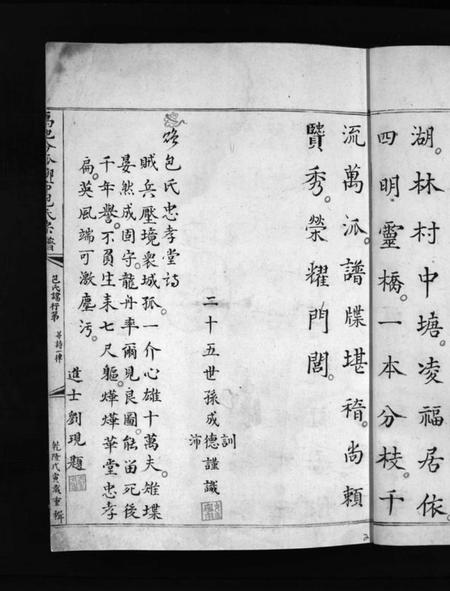 湖。林村中塘。凌福居依。
四明靈橋。一本分枝。千
流萬派。譜牒堪稽。尚頼
賢秀。榮耀門閭。
二十五世孫成
訓
德謹識
沛
包氏忠孝堂詩
賊兵壓境衆城孤。一介心雄十萬夫。雉堞
晏然成固守。龍丹率爾見良圖。能留死後
千年譽。不負生来七尺軀。燁燁華堂忠孝
扁。英風端可激塵污。
進士劉現題
包氏譜行第
乾隆戊寅歲重輯